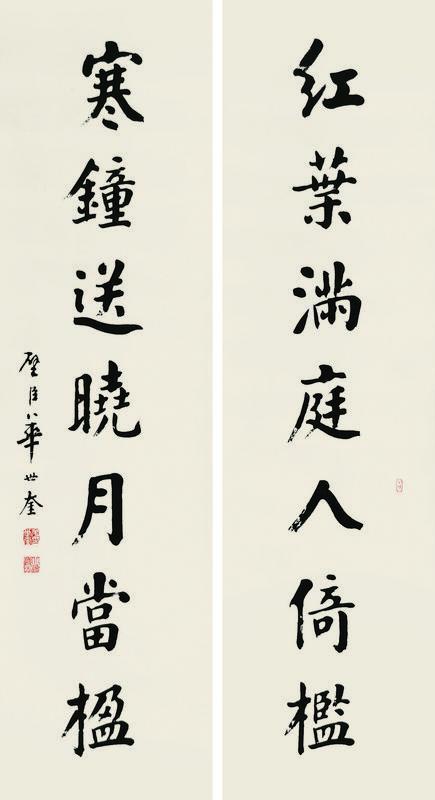 红葉滿庭人倚檻
寒鐘送曉月當楹
璧臣華世奎